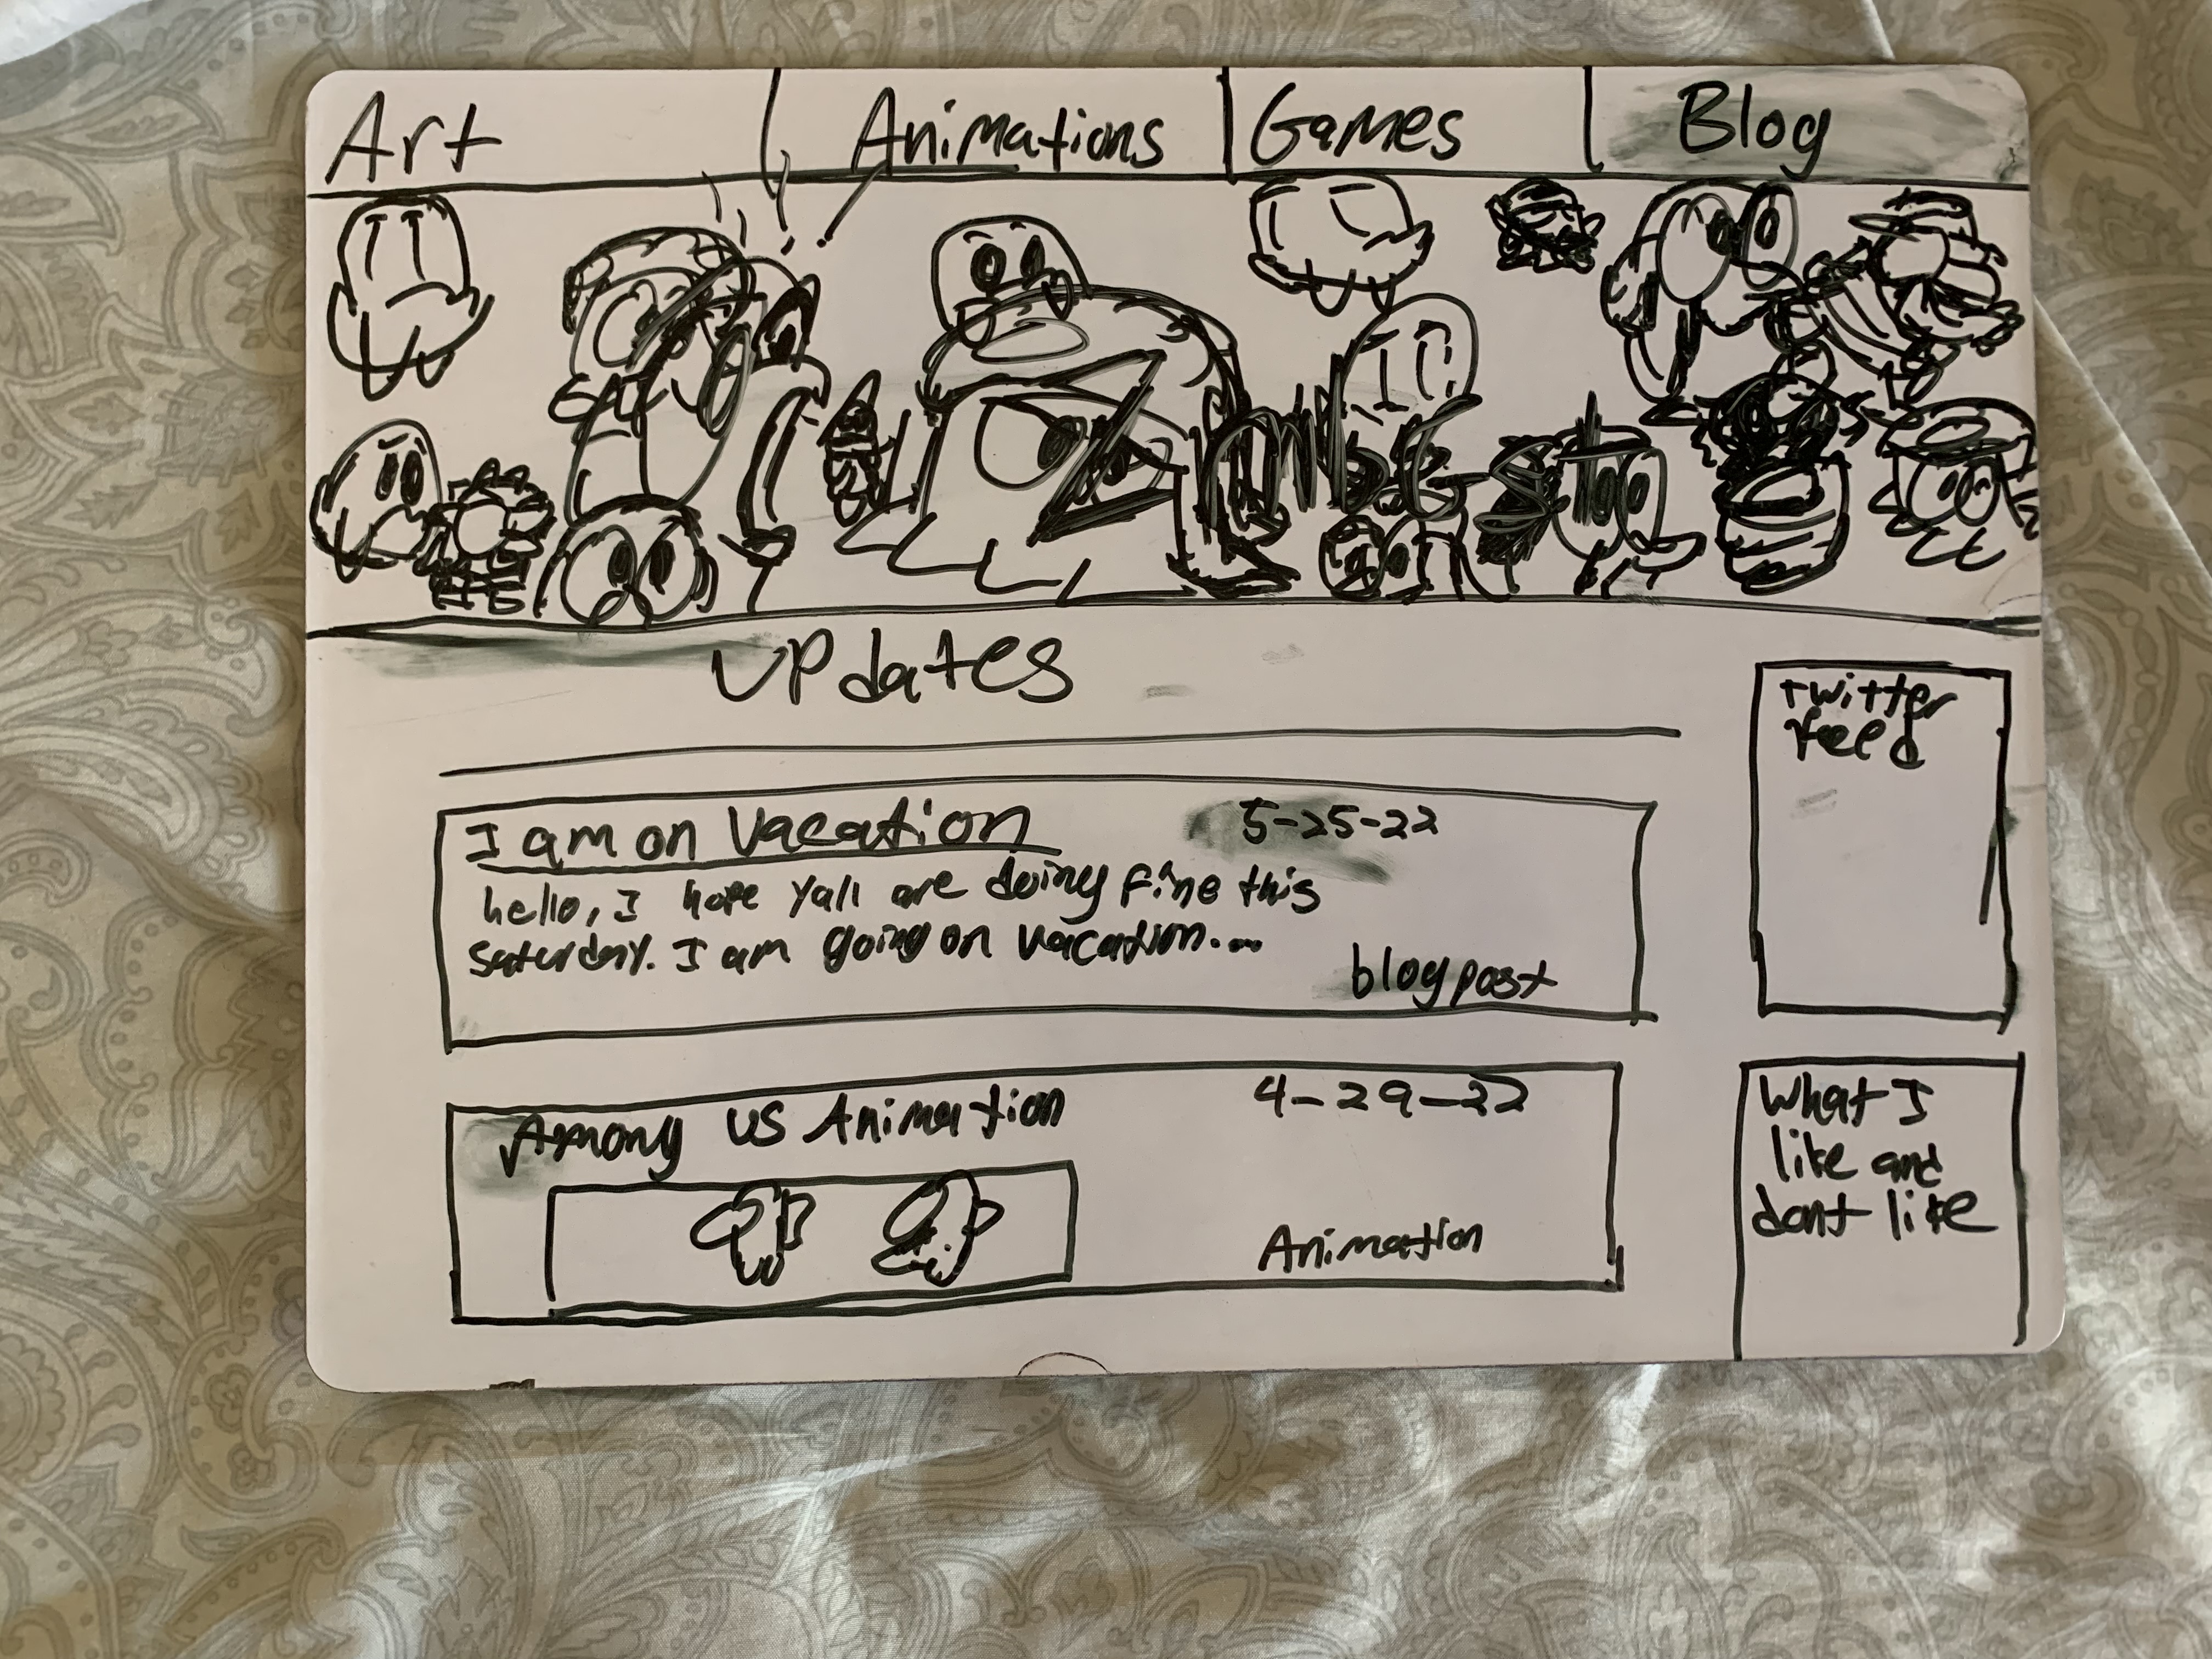 Art
Animations
Games
Blog
updates
twitter
feed
I am on vacation
5-25-22
hello, I hope yall are doing fine this
saterday. I am going on vacation...
blog post
Among us Animation
4-29-22
Animation
What I
like and
dont like